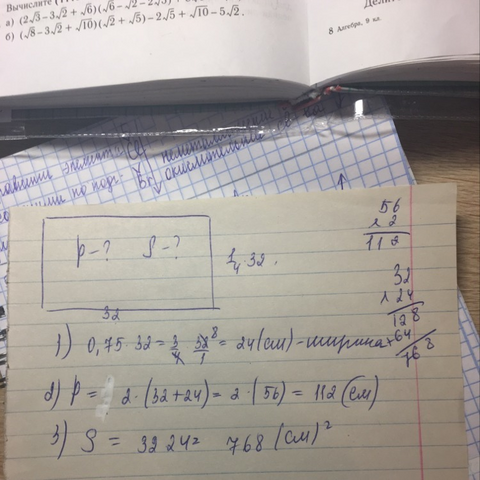 Вычислите
а) (2√3−3√2+√6)(√6−√2−2√3)
б) (√8−3√2+√10)(√2+√5)−2√5+√10−5√2.
8 Алгебра, 9 кл.
P-? S-?
32
1/4·32.
56
x 2
112
32
x 24
128
+64
768
1) 0,75·32 = 3/4 · 32/1 8 = 24(см) - ширина
2) P = 2·(32+24) = 2·(56) = 112 (см)
3) S = 32 24 = 768 (см)²